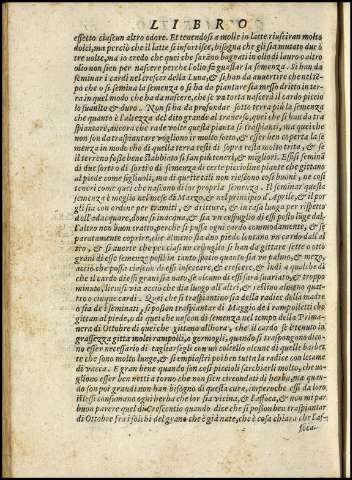 LIBRO
effetto ciascun altro odore. Et tenendosi a molle in latte riusciran molto
dolci, ma perciò che il latte si infortisce, bisogna che gli sia mutato due ò
tre volte, ma io credo che quei che saranno bagnati in olio di lauro o altro
olio non sien per nascere perche l'olio fa guastar la semenza. Si han da
seminar i cardi nel crescer della Luna, & si han da avvertire che nel tẽ
po che o si semina la semenza o si ha da piantare sia messo dritto in ter
ra in quel modo che ha da nascere, che se va torta nascerà il cardo piccio
lo
&
duro. Non si ha da profondar sotto terra più la semenza
che quanto è l'altezza del dito grande al traverso, quei che si han da tra
spiantare, ancora che rade volte questa pianta si traspianti, ma quei che
non son da traspiantare vogliono ir molto sotto, & esser ben coperta la se
menza in modo che di quella terra resti di sopra molto trita, & se
il terreno fusse ben stabbiato si fan più teneri, & migliori. Essi si semina
di due sorti o di sorti di semenza o di certe picciole piante che gittano
al piede come figliuoli, ma di questi tali non riescono così buoni, ne così
teneri come quei che nascono di lor propria semenza. Il seminar questa
semenza è meglio nel mese di Marzo, & nel principio d'Aprile, & il por
gli sia con ordini per tratti, & a dritura, & in casa lunga per rispetto
dell'adacquare, dove si inacqua, & sia un cespuglio di essi posto lunge dal
l'altro non buon tratto, perche si possa ogni cardo commodamente, & se
paratamente coprire, che almeno sian dieci piedi lontano un cardo dall'al
tro, & si avverte che per ciascun cespuglio si han da gittare sette o otto
grani di essa semenza posti in tanto spatio quanto sia un palmo, & mezo,
acciò che possa ciascun di essi insetire, & crescere, & indi a qualche dì
che il cardo di essi grani sia nato, se alcuno di essi sarà svariato, & troppo
minuto, levisi via acciò che dia luogo all'altri, & restino almeno quat
tro o cinque cardi. Quei che si traspiantino sia della radice della madre
o sia de i seminati, si posson traspiantar di Maggio de i rampolletti che
gittan al piede, o di quei che nascono di semenza nel tempo della Prima
vera di Ottobre di quei che gittano all'hora, che il cardo se è tenuto in
grassezza gitta molti rampolli, o germogli, quando si traspongono dico
no esser necessario di tagliar seglie con un coltello alcune di quelle barbet
te che sono molto lunge, & si empiastri poi ben tutta la radice con letame
di vacca. E gran bene quando son così piccioli sarchiarli molto, che vo
gliono esser ben netti a torno che non sien circondati di herba, ma quan
do son poi grandi non han bisogno di questa cura, imperoche essi da loro
istessi consumano ogni herba che lor sia vicina, & l'affoca, & non mi par
buon parere quel di Crescentio quando dice che si posson ben traspiantar
di Ottobre fra i solchi del grano che è già nate, che è cosa chiara che l'af
foca-